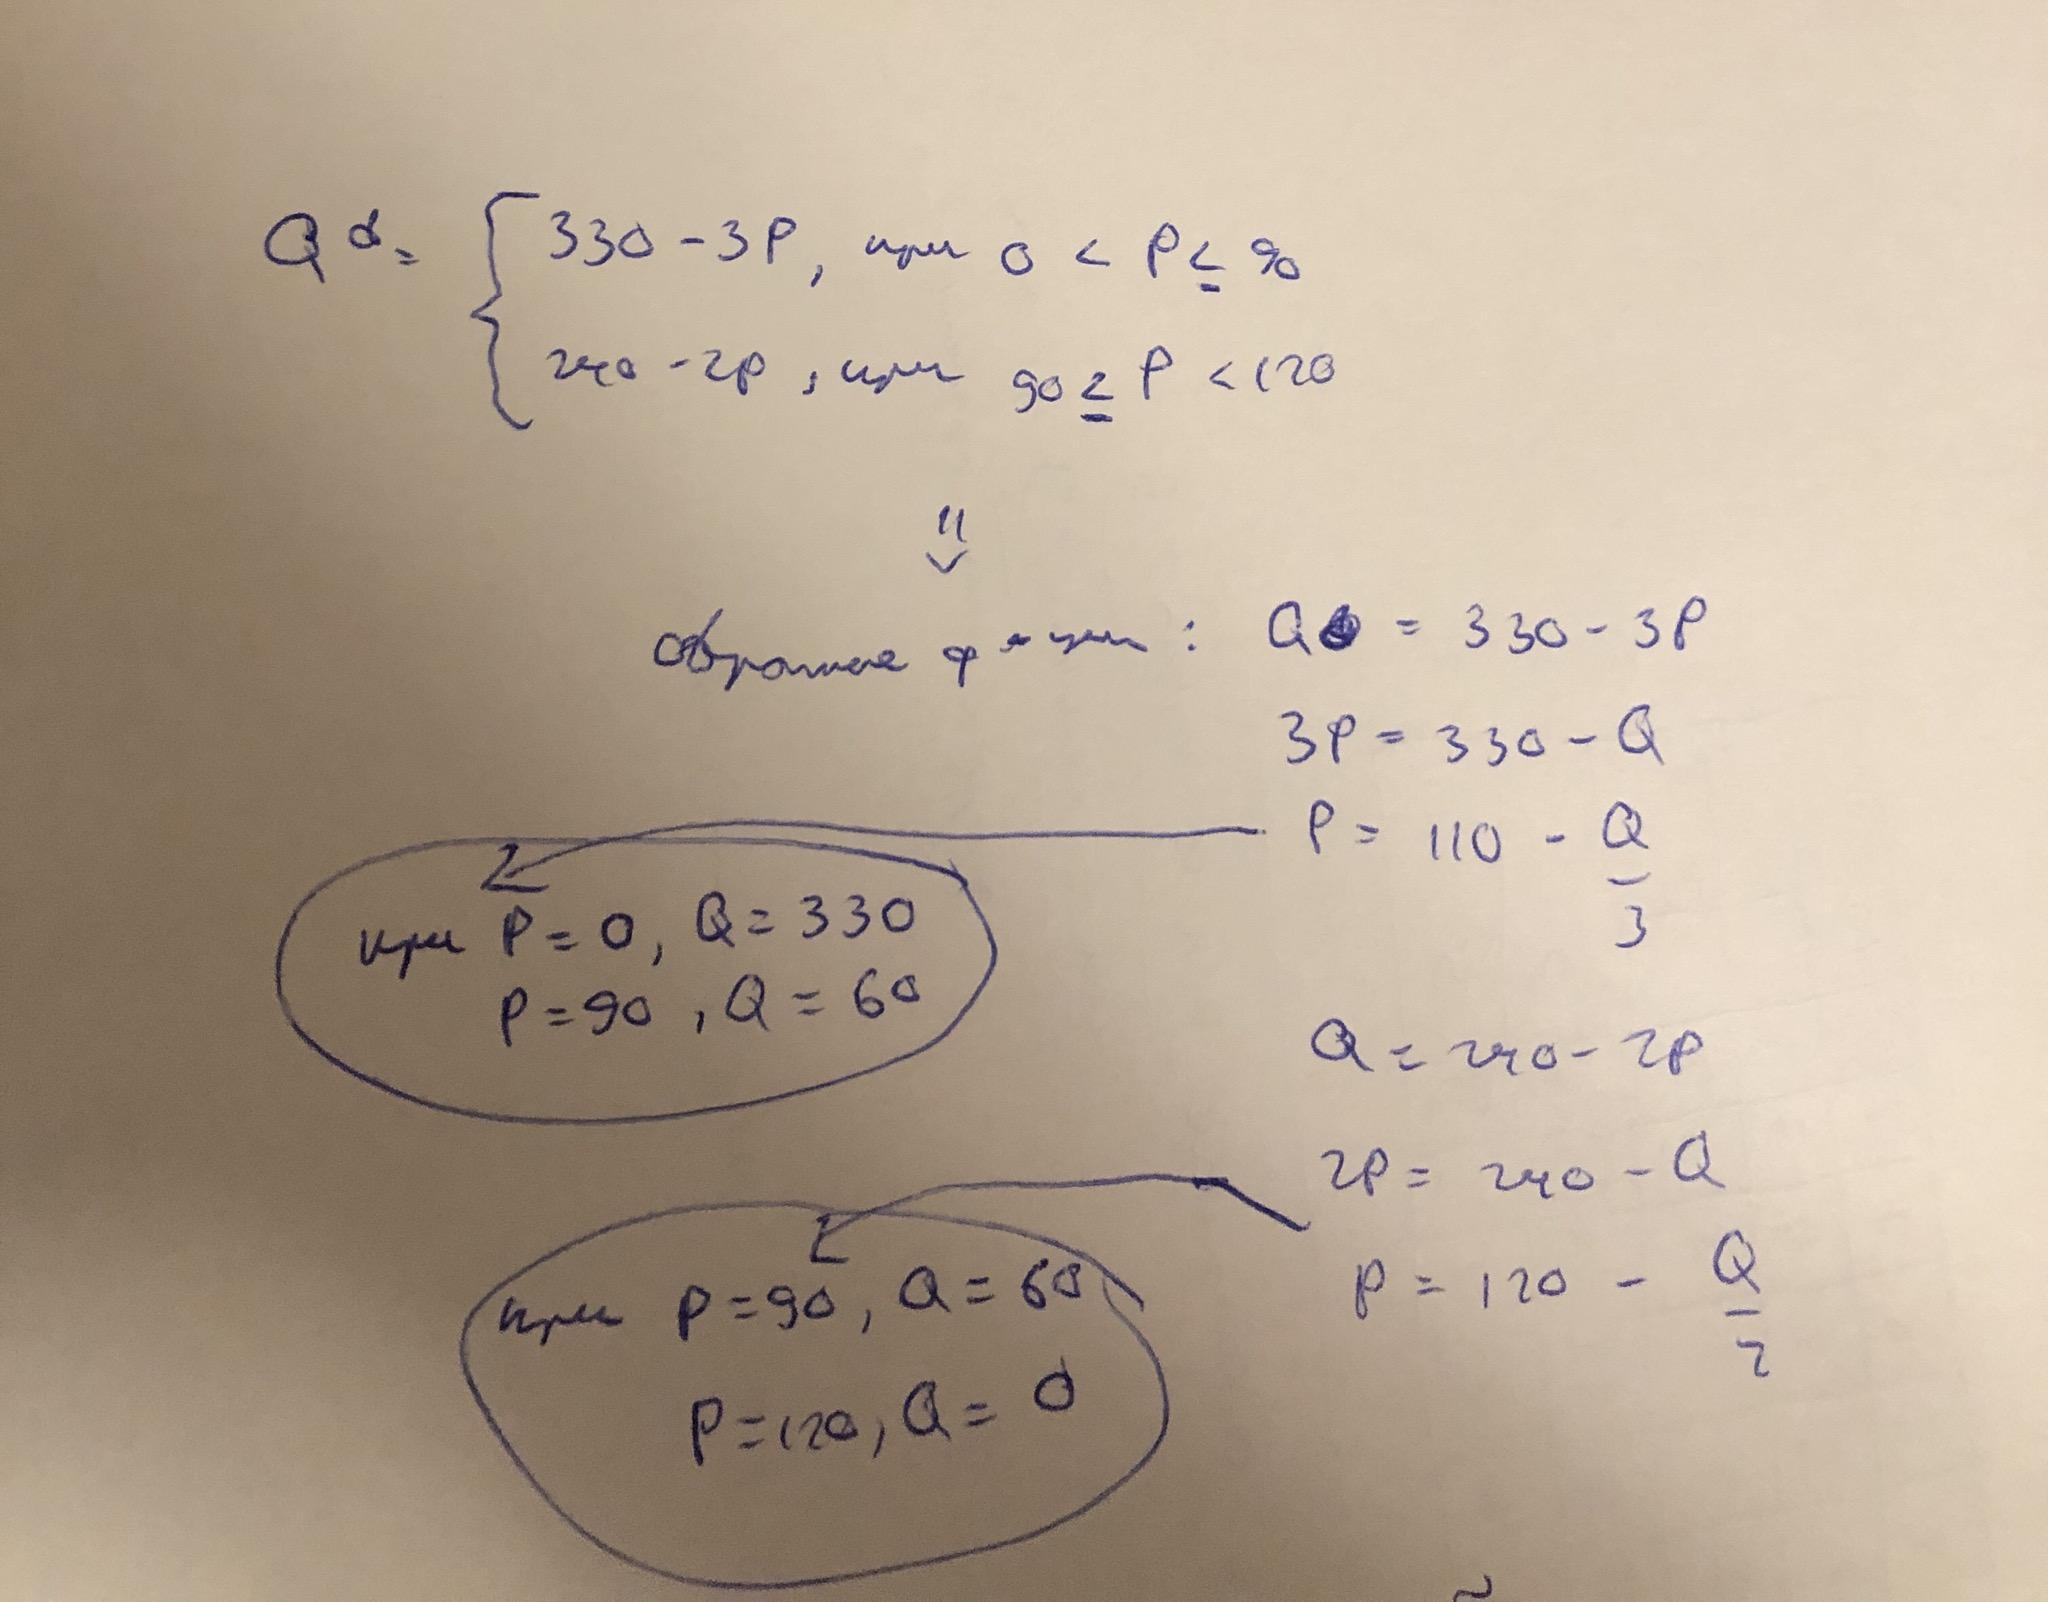 Qd = { 330 - 3P, при 0 < P ≤ 90
240 - 2P, при 90 ≥ P < 120
⇓
обратные ф-ции: Q = 330 - 3P
3P = 330 - Q
P = 110 - Q/3
при P = 0, Q = 330
P = 90, Q = 60
Q = 240 - 2P
2P = 240 - Q
P = 120 - Q/2
при P = 90, Q = 60
P = 120, Q = 0